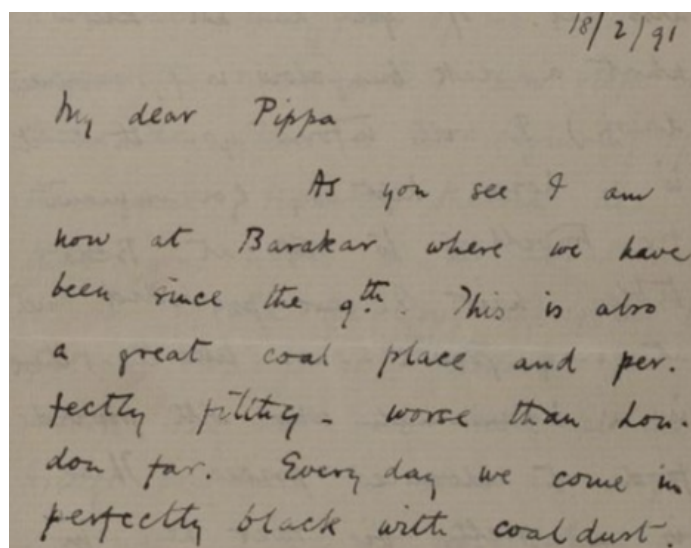 18/2/91
My dear Pippa
As you see I am
now at Barakar where we have
been since the 9th. This is also
a great coal place and per-
fectly filthy - worse than Lon-
don far. Every day we come in
perfectly black with coaldust.